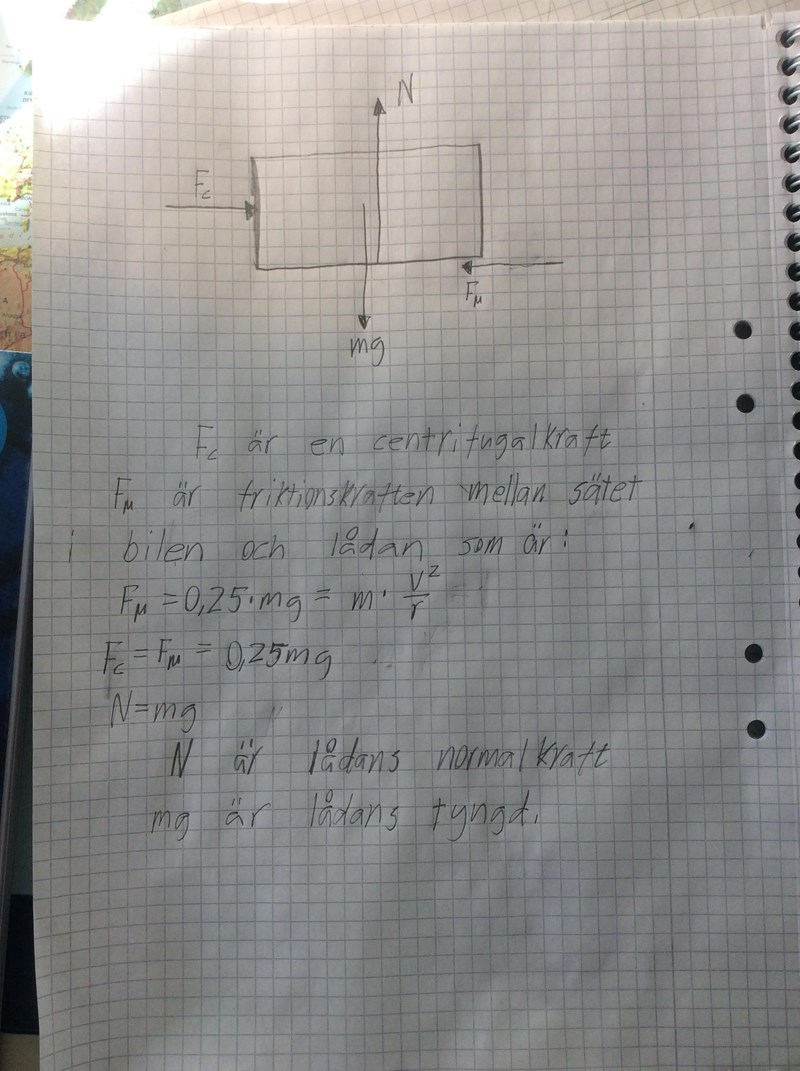 N
F_c
F_μ
mg
F_c är en centrifugalkraft
F_μ är friktionskraften mellan sätet
i bilen och lådan som är:
F_μ = 0,25·mg = m· v²/r
F_c = F_μ = 0,25mg
N=mg
N är lådans normalkraft
mg är lådans tyngd.